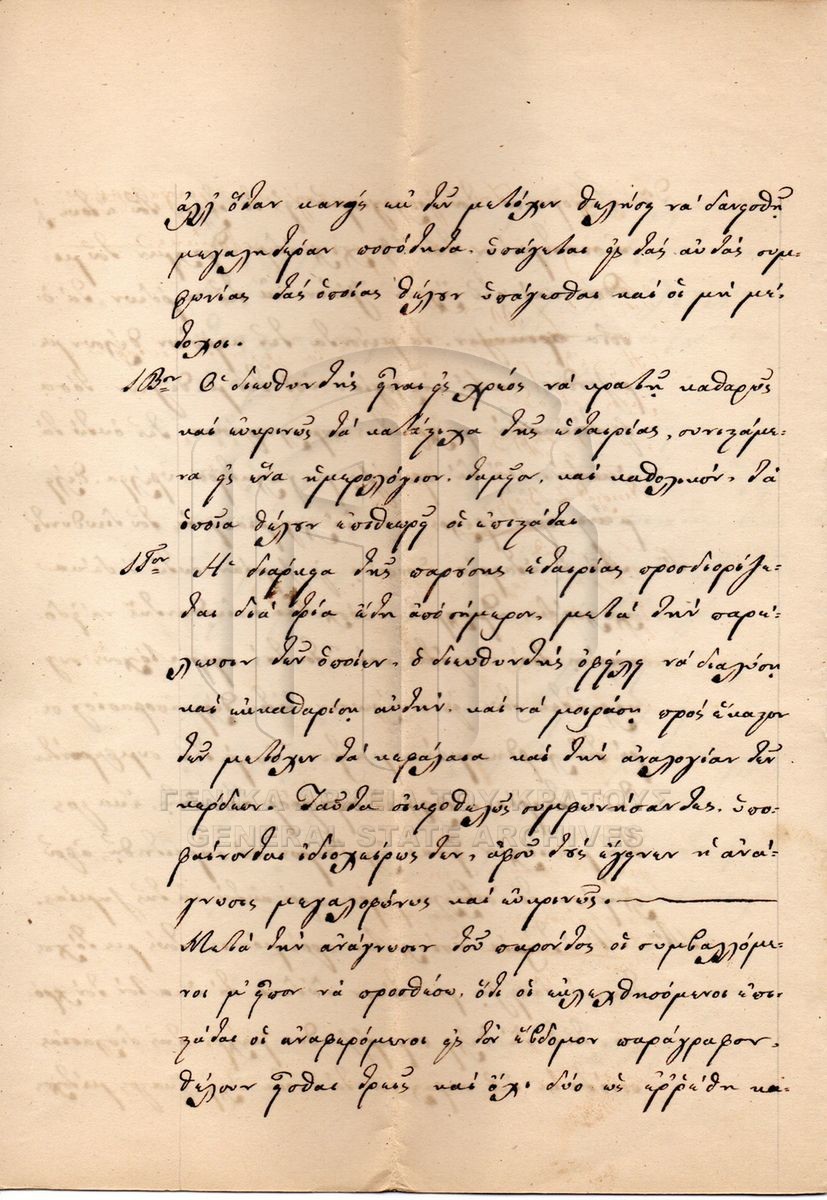 ἀλλ' ὅταν κανεὶς ἐκ τῶν μετόχων θελήσῃ νὰ δανεισθῇ
μεγαλητέραν ποσότητα, ὑπάγεται εἰς τὰς αὐτὰς συμ-
φωνίας τὰς ὁποίας θέλουν ὑπάγεσθαι καὶ οἱ μὴ μέ-
τοχοι.
12ον Ὁ διευθυντὴς εἶναι εἰς χρέος νὰ κρατῇ καθαρῶς
καὶ εὐκρινῶς τὰ κατάστιχα τῆς ἑταιρίας, συνιστάμε-
να εἰς ἕνα ἡμερολόγιον, ταμεῖον, καὶ καθολικόν, τὰ
ὁποῖα θέλουν ἐπιθεωρεῖ οἱ ἐπιστάται
13ον Ἡ διάρκεια τῆς παρούσης ἑταιρίας προσδιορίζε-
ται διὰ τρία ἔτη ἀπὸ σήμερον, μετὰ τὴν παρέ-
λευσιν τῶν ὁποίων, ὁ διευθυντὴς ὀφείλει νὰ διαλύσῃ
καὶ ἐκκαθαρίσῃ αὐτήν, καὶ νὰ μοιράσῃ πρὸς ἕκαστον
τῶν μετόχων τὰ κεφάλαια καὶ τὴν ἀναλογίαν τῶν
κερδῶν. Ταῦτα οἰκοθελῶς συμφωνήσαντες, ὑπο-
φαίνονται ἰδιοχείρως των, ἀφοῦ τοὺς ἔγεινεν ἡ ἀνά-
γνωσις μεγαλοφώνως καὶ εὐκρινῶς.
Μετὰ τὴν ἀνάγνωσιν τοῦ παρόντος οἱ συμβαλλόμε-
νοι μ' εἶπον νὰ προσθέσω, ὅτι οἱ ἐκλεχθησόμενοι ἐπι-
στάται οἱ ἀναφερόμενοι εἰς τὸν ἕβδομον παράγραφον,
θέλουν εἶσθαι τρεῖς καὶ ὄχι δύο ὡς ἐῤῥέθη κα-
ΓΕΝΙΚΑ ΑΡΧΕΙΑ ΤΟΥ ΚΡΑΤΟΥΣ
GENERAL STATE ARCHIVES